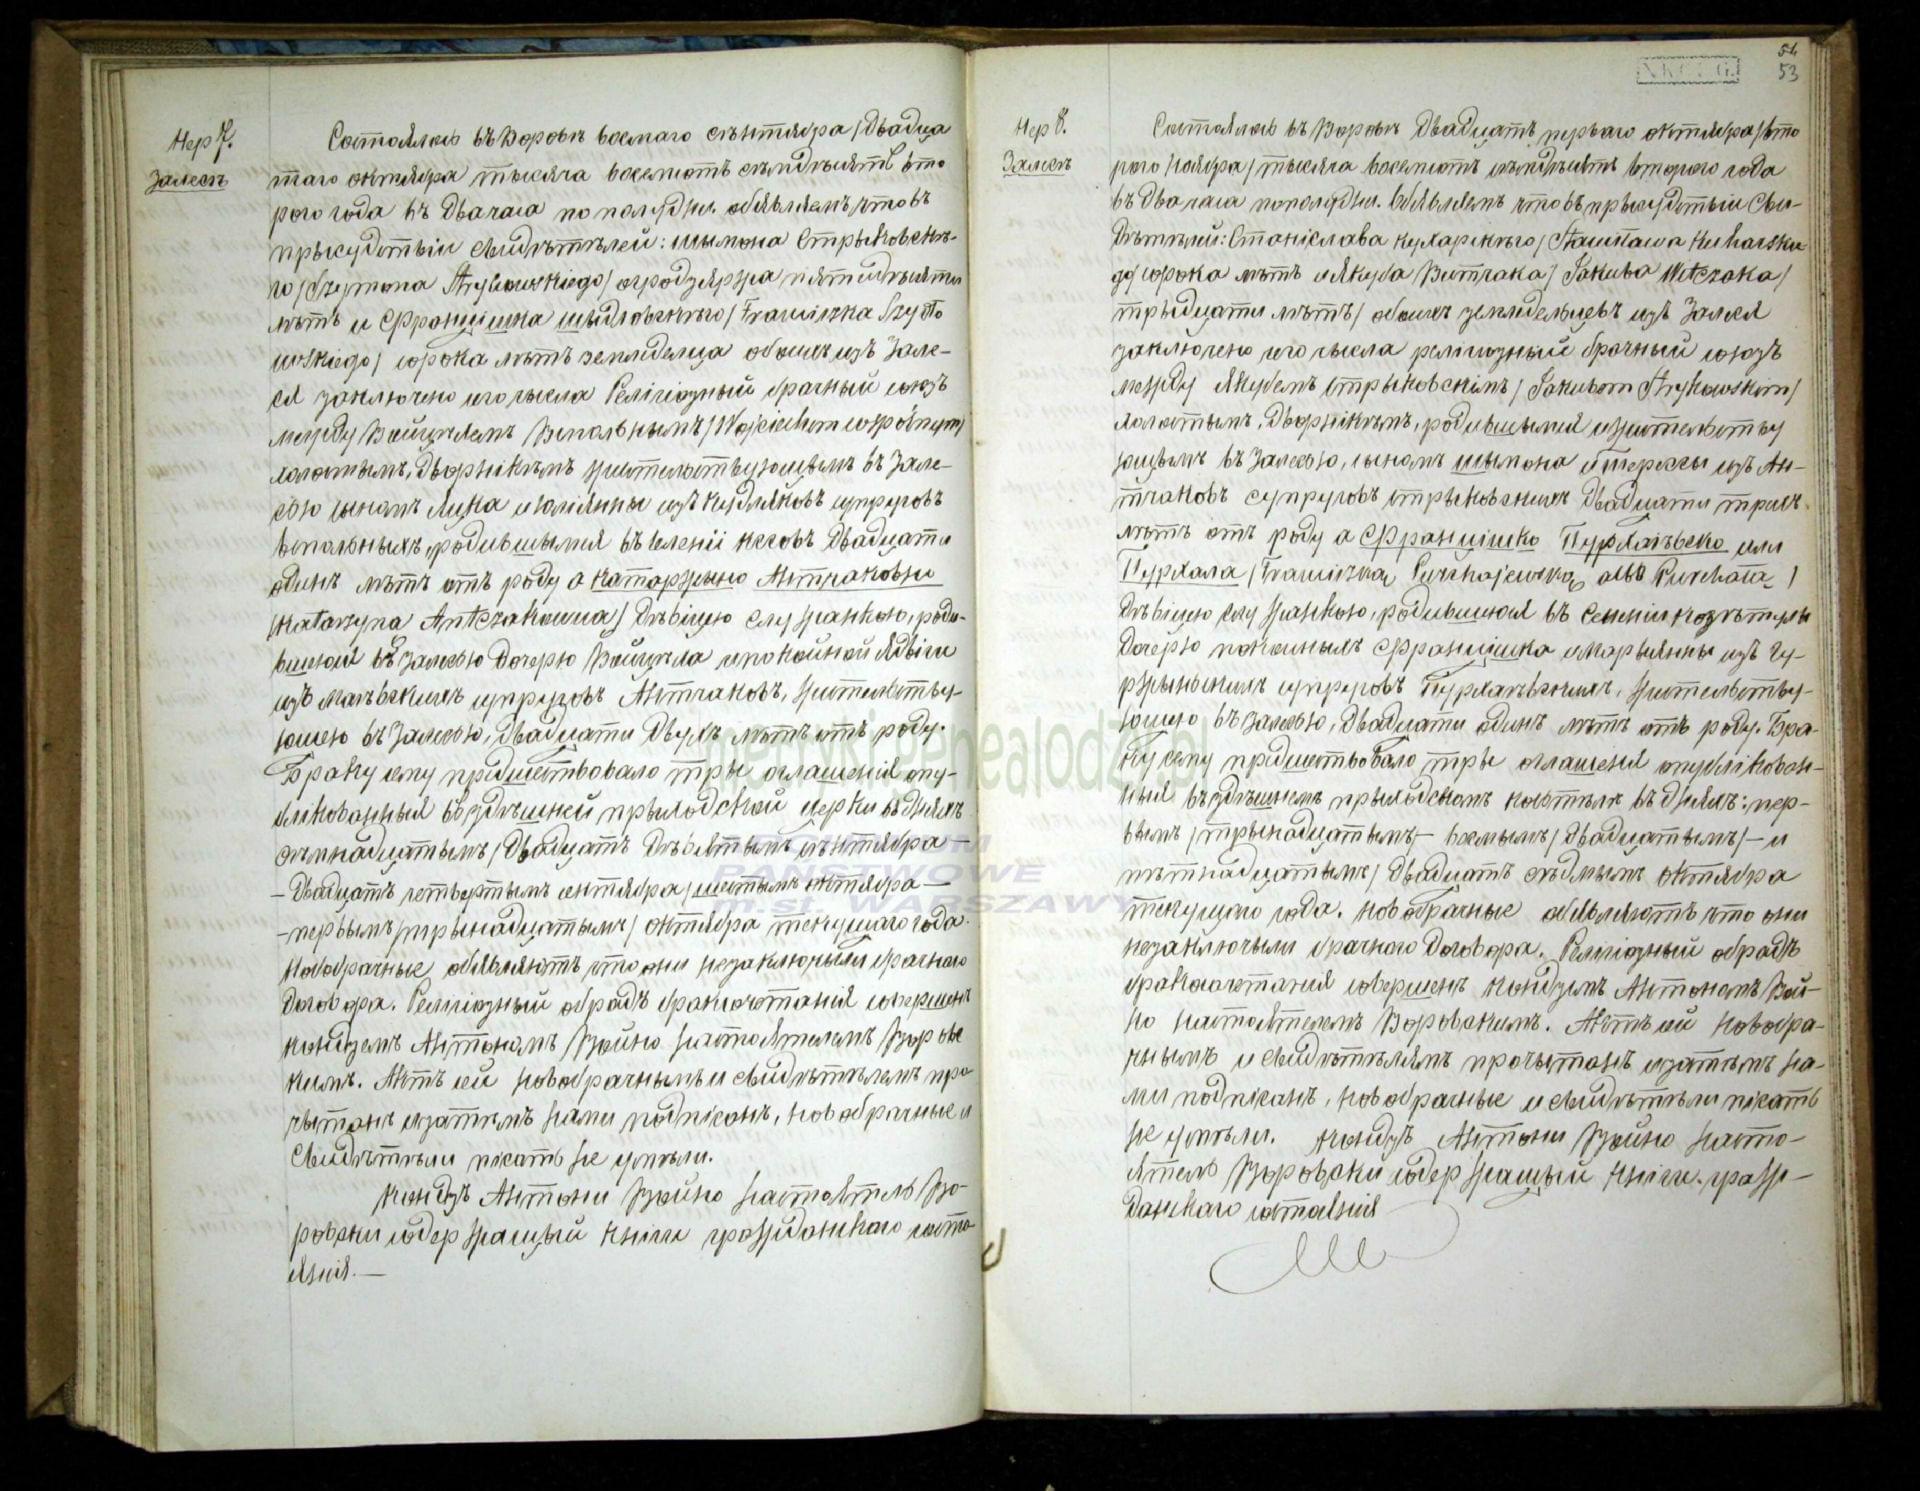 Нер 7.
Залесѣ
Состоялось въ Воровѣ восмаго сѣнтября/Двадца
таго октября тысяча восемсотъ сѣмдѣсятъ вто
рого года въ Два часа по полудни. объявляемъ, что въ
прысудствіи свидѣтѣлей: шымона Стрыковскѣ-
го/Szymona Strykowskiego/ огродзяржа пятидѣсяти
лѣтъ и Францишка шыдловскѣго/Franciszka Szydło
wskiego/ сорока лѣтъ земледелца обоихъ изъ Зале-
ся заключено сего числа Религіозный брачный союзъ
между Войцѣхемъ Впольнымъ/Wojciechem
холостымъ, Дворнікѣмъ жительствующимъ въ Зале-
сью сыномъ Яцка и юліянны изъ супруговъ
впольныхъ, родившымся въ Двадцати
одинъ лѣтъ отъ роду а катаржыною Антчаковню
/Katarzyna Antczakowna/ Дѣвіцею служанкою, роди-
вшеюся въ Залесью Дочерю Войцѣха и покойной Ядвіги
изъ супруговъ Антчаковъ, жительству-
ющею въ Залесью, Двадцати Двухъ лѣтъ отъ роду.
Браку сему прѣдшествовало тры оглашенія опу-
блікованныя въ здѣшней прыходской церки въ дняхъ
сѣмнадцатымъ/Двадцатъ Дѣвятымъ сѣнтября —
— Двадцатъ четвертымъ сентября/шестымъ октября —
— первымъ/трынадцатымъ/ октября текущаго года.
Новобрачные объявляютъ что они незаключыли брачного
Договора. Религіозный обрадъ бракосочтанія совершенъ
ксендземъ Антономъ Войно настоятелемъ Воровс
кимъ. Актъ сей новобрачнымъ и свидѣтѣлемъ про
чытанъ изатѣмъ нами подпісанъ, новобрачные и
Свидѣтѣли пісать не умѣли.
ксендзъ Антони Войно настоятель Во-
ровски содержащый кніги гражданскаго состо
янія. —
54
53
Нер 8.
Залесѣ
Состоялось въ Воровѣ Двадцатъ перваго октября/вто
рого ноября/тысяча восемсотъ сѣмдѣсятъ второго года
въ Два часа пополудни. Объявляемъ что въ прысудствіи Сви-
Дѣтѣлей: Станіслава кухарскѣго/Stanisława Kucharskie
go/ сорока лѣтъ и Якуба Витчака/Jakuba Witczaka/
трыдцати лѣтъ/ обоихъ земледельцевъ изъ Залеся
заключено сего числа религіозный брачный союзъ
между Якубемъ Стрыковскімъ/Jakubom Strykowskim/
холостымъ, Дворнікѣмъ, родившымся и жительству
ющымъ въ Залесью, сыномъ шымона и терессы изъ Ан-
тчаковъ супруговъ Стрыковскихъ Двадцати трихъ
лѣтъ отъ роду а Францішко Пурхаѣвско или
Пурхала/Franciszka Purchajewska albo Purchała/
Дѣвіцею служанкою, родившеюся въ
Дочерю покойныхъ Францишка и марьянны изъ Гу-
ржыньскихъ супруговъ Пурхаѣвскихъ, жительству-
ющею въ Залесью, Двадцати одинъ лѣтъ отъ роду. Бра-
ку сему прѣдшествовало тры оглашенія опублікован-
ныя въ здѣшнемъ прыходскомъ костѣлѣ въ дняхъ: пер-
вымъ/трынадцатымъ/ — восмымъ/Двадцатымъ/ — и
пятнадцатымъ/Двадцатъ сѣдмымъ октября
текущаго года. Новобрачные объявляютъ что они
незаключыли брачного Договора. Религіозный обрадъ
бракосочтанія совершенъ ксендземъ Антономъ Вой-
но настоятелемъ Воровскимъ. Актъ сей новобра-
чнымъ и свидѣтѣлямъ прочытанъ изатѣмъ на-
ми подпісанъ, новобрачные и свидѣтѣли пісать
не умѣли. ксендзъ Антони Войно насто-
ятель Воровски содержащый кніги граж-
данскаго состоянія
metryki.genealodzy.pl
ARCHIWUM
PAŃSTWOWE
m.st. WARSZAWY